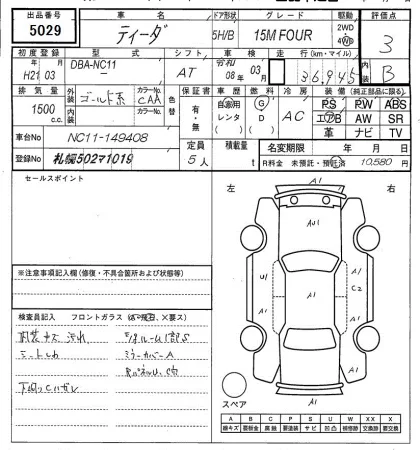 出品番号 車名 ドア形状 グレード 駆動 評価点
5029 ティーダ 5H/B 15M FOUR 2WD 4WD 3
初度登録 型式 シフト 車検 走行(km・マイル) 内装
H21年 03月 DBA-NC11 AT 令和 08年 03月 36,945 B
排気量 外装 ゴールド系 カラーNo. CAA 色替 保証書 車歴 燃料 冷房 装備(純正部品に限る)
1500c.c. 内装 カラーNo. 有・無 自家用 レンタ G D AC PS PW ABS
エアB AW SR
革 ナビ TV
車台No NC11-149408 定員 積載量 名変期限 年 月 日
登録No 札幌502マ1019 5人 t R料金 未預託・預託済 10,580円
セールスポイント
左 右
A1
AU1
U1 A1 A1 C2
A1
※注意事項記入欄(修復・不具合箇所および状態等)
検査員記入 フロントガラス
内装キズ 汚れ
シートコゲ ミラーカバーA
下廻りサビ
A1 A1
A1
スペア
A B C P S U W X XX
線キズ 要板金 腐蝕 要塗装 サビ 凹凸 補修跡 交換跡 要交換